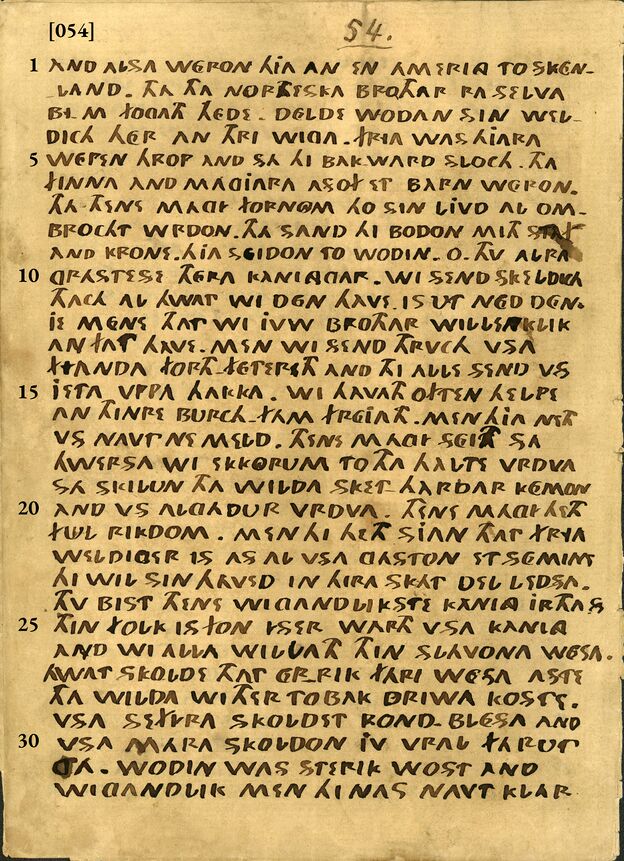 [054]
54.
1 AND ALSA WERON HIA AN EN HMERIA TO SKEN-
LAND. THA THA NORTHESKA BROTHAR RA SELVA
BI-M FOGATH HEDE. DELDE WODAN SIN WEL-
DICH HER AN THRI WIGA. FRIA WAS HIARA
5 WEPEN HROP AND SA HI BAKWARD SLOCH. THA
FINNA AND MAGIARA AS OF ET BARN WERON.
THA THENE MAGI FORNOM HO SIN LIVD AL OM-
BROCHT WRDON. THA SAND HI BODON MITH STAF
AND KRONE. HIA SEIDON TO WODIN. O. THV ALRA
10 GRATESTE THERA KANINGAR. WI SEND SKELDICH
THACH AL HWAT WI DEN HAVE. IS UT NED DEN.
IE MENE THAT WI IVW BROTHAR WILLENKLIK
ANFAT HAVE. MEN WI SEND THRVCH VSA
FIANDA FORTH-FETERETH AND THI ALLE SEND VS
15 IETA VPPA HAKKA. WI HAVATH OFTEN HELPE
AN THINRE BURCH-FAM FREIATH. MEN HIA NETH
VS NAVT NE MELD. THENE MAGI SEITH SA
HWERSA WI EKKORUM TO THA HALTE VRDVA
SA SKILUN THA WILDA SKEP-HARDAR KEMON
20 AND VS ALGADUR VRDVA. THENE MAGI HETH
FUL RIKDOM. MEN HI HETH SIAN THAT FRIA
WELDIGER IS AS AL VSA GASTON ET SEMINE
HI WIL SIN HAVED IN HIRA SKAT DEL LEDSA.
THV BIST THENE WIGANDLIKSTE KANIG IRTHAS
25 THIN FOLK IS FON ISER WARTH VSA KANIG
AND WI ALLA WILLATH THIN SLAVONA WESA.
HWAT SKOLDE THAT ER-RIK FARI WESA ASTE
THA WILDA WITHER TO BAK DRIWA KOSTE.
VSA SEFIRA SKOLDET ROND-BLESA AND
30 VSA MARA SKOLDON IV VRAL FARUT
GA. WODIN WAS STERIK WOST AND
WIGANDLIK MEN HI NAS NAVT KLAR